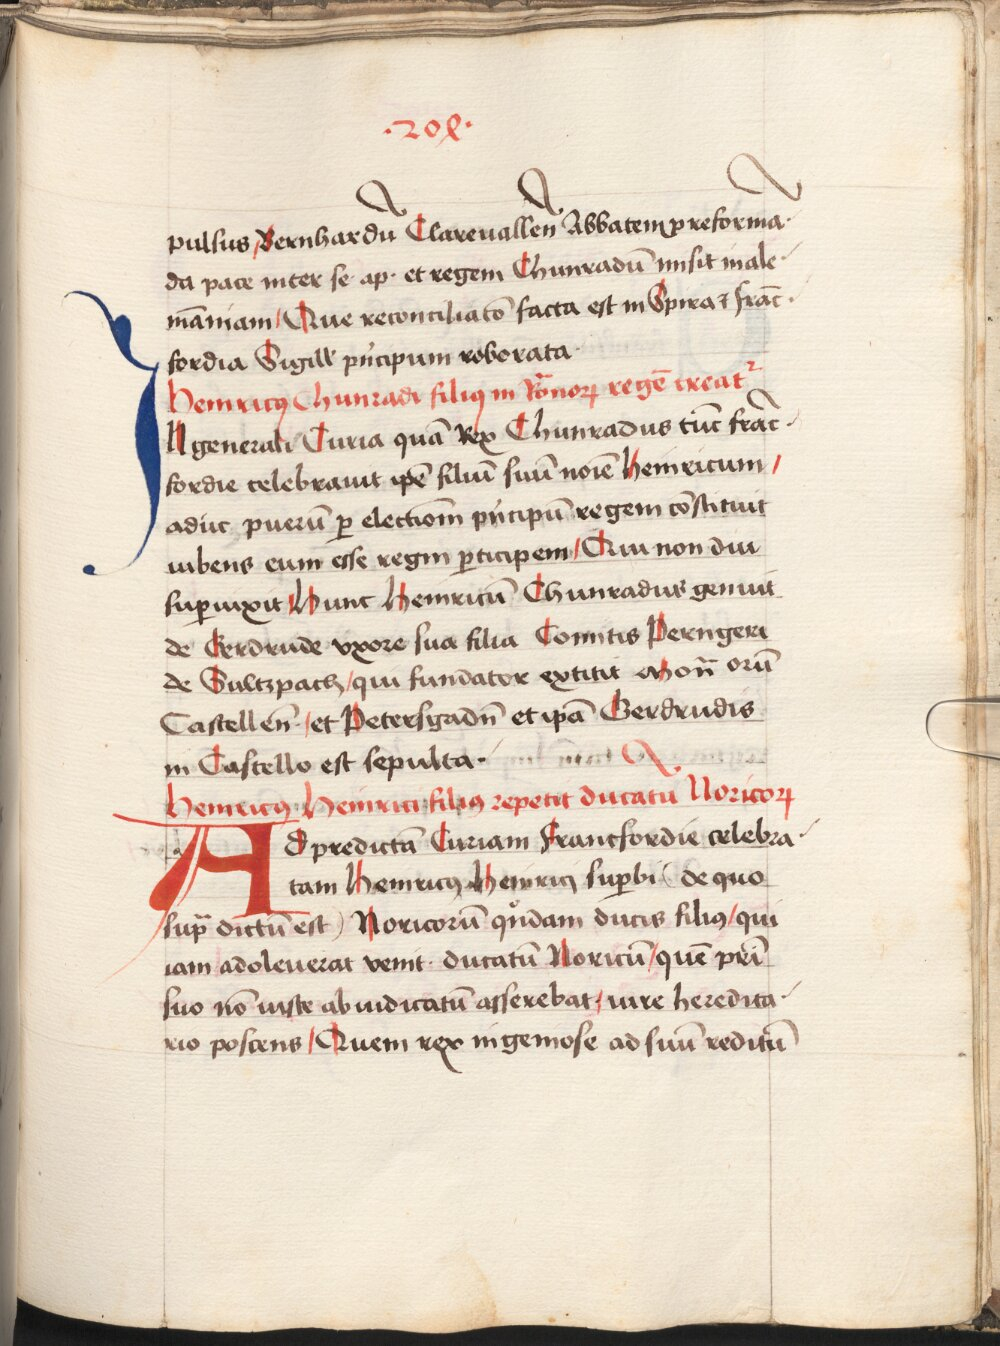 ·204·
pulsus Bernhardū Clareuallen̄ Abbatem p̲ reformā·
da pace inter se· ap· et regem Chunradū misit in ale·
māniam / Que reconciliatō facta est in Spira ⁊ franc̄·
fordia Sigill' pn̍cipum roborata
Heinricꝯ Chunradi filiꝯ in Rōnoꝝ regē creatᷣ
IN generali Curia quā Rex Chunradus tūc franc̄·
fordie celebrauit ip̄e filiū suū noīe Heinricum /
aduc puerū ꝑ electiom̄ pn̍cipū regem cōstituit
iubens eum esse regni ꝑticipem / Qui non diu
suꝑuixit / Hunc Heinricū Chunradus genuit
de Gerdrude vxore sua filia Comitis Perngeri
de Sultzpach / qui fundator extitit Mon̄ orū
Castellen̄ / et Petersgadn̄ et ip̄a Gerdrudis
in Castello est sepulta·
Heinricꝯ Heinrici filiꝯ repetit ducatū Noricoꝝ
AD predictā Curiam Francfordie celebra·
tam Heinricꝯ Heinrici suꝑbi ( de quo
sup̄ dictū est ) Noricorū quōdam ducis filiꝯ / qui
iam adoleuerat venit· ducatū Noricū / quē pr̄i
suo nō iuste abiudicatū asserebat / iure heredita·
rio poscens / Quem rex ingeniose ad suū reditū